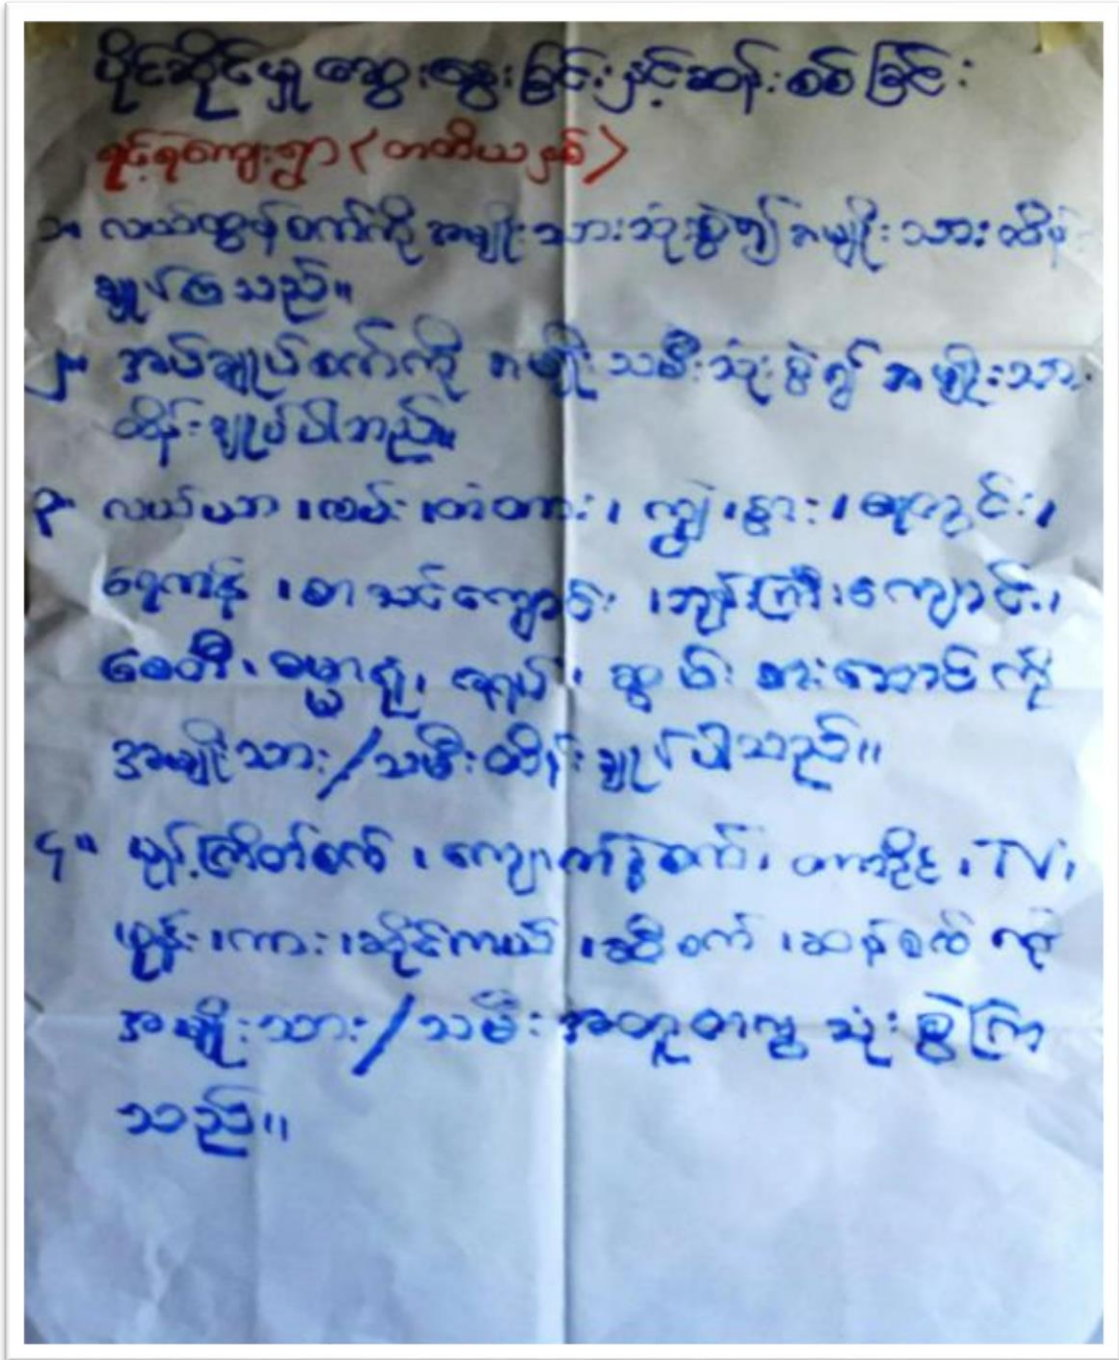 ပိုင်ဆိုင်မှု ဆွေးနွေးခြင်းနှင့်ဆန်းစစ်ခြင်း
ရင့်ရဲကျေးရွာ (တတိယနှစ်)
၁။ လယ်ထွန်စက်ကို အမျိုးသားသုံးစွဲ၍ အမျိုးသားထိန်း
ချုပ်ကြသည်။
၂။ အပ်ချုပ်စက်ကို အမျိုးသမီးသုံးစွဲ၍ အမျိုးသား
ထိန်းချုပ်ပါသည်။
၃။ လယ်ယာ၊ လမ်း၊ တံတား၊ ကျွဲ၊ နွား၊ ရေတွင်း၊
ရေကန်၊ စာသင်ကျောင်း၊ ဘုန်းကြီးကျောင်း၊
စေတီ၊ ဓမ္မာရုံ၊ ဇရပ်၊ ဆွမ်းစားဆောင်ကို
အမျိုးသား/သမီးထိန်းချုပ်ပါသည်။
၄။ မုန့်ကြိတ်စက်၊ ကျောက်ခွဲစက်၊ ထော်လာဂျီ၊ TV၊
ဖုန်း၊ ကား၊ ဆိုင်ကယ်၊ ဆီစက်၊ ဆန်စက်ကို
အမျိုးသား/သမီး အတူတကွ သုံးစွဲကြ
သည်။